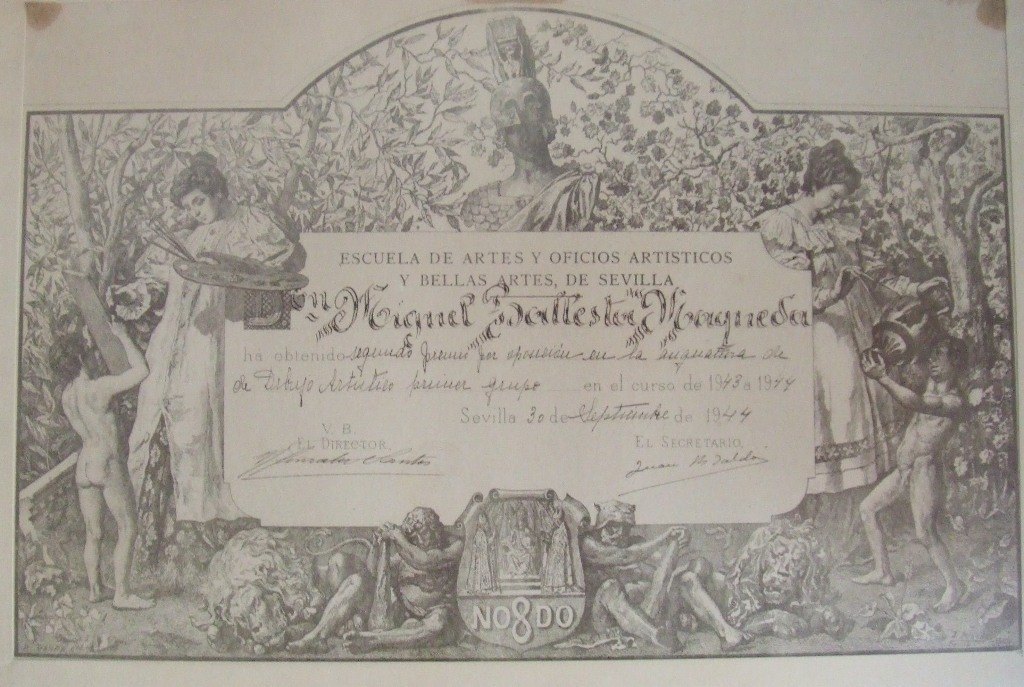 ESCUELA DE ARTES Y OFICIOS ARTISTICOS
Y BELLAS ARTES, DE SEVILLA
Don Miguel Ballesta Maqueda
ha obtenido segundo premio por oposición en la asignatura de
de Dibujo Artístico primer grupo en el curso de 1943 a 1944
Sevilla 30 de Septiembre de 1944
V. B.
EL DIRECTOR,
EL SECRETARIO,
NO8DO